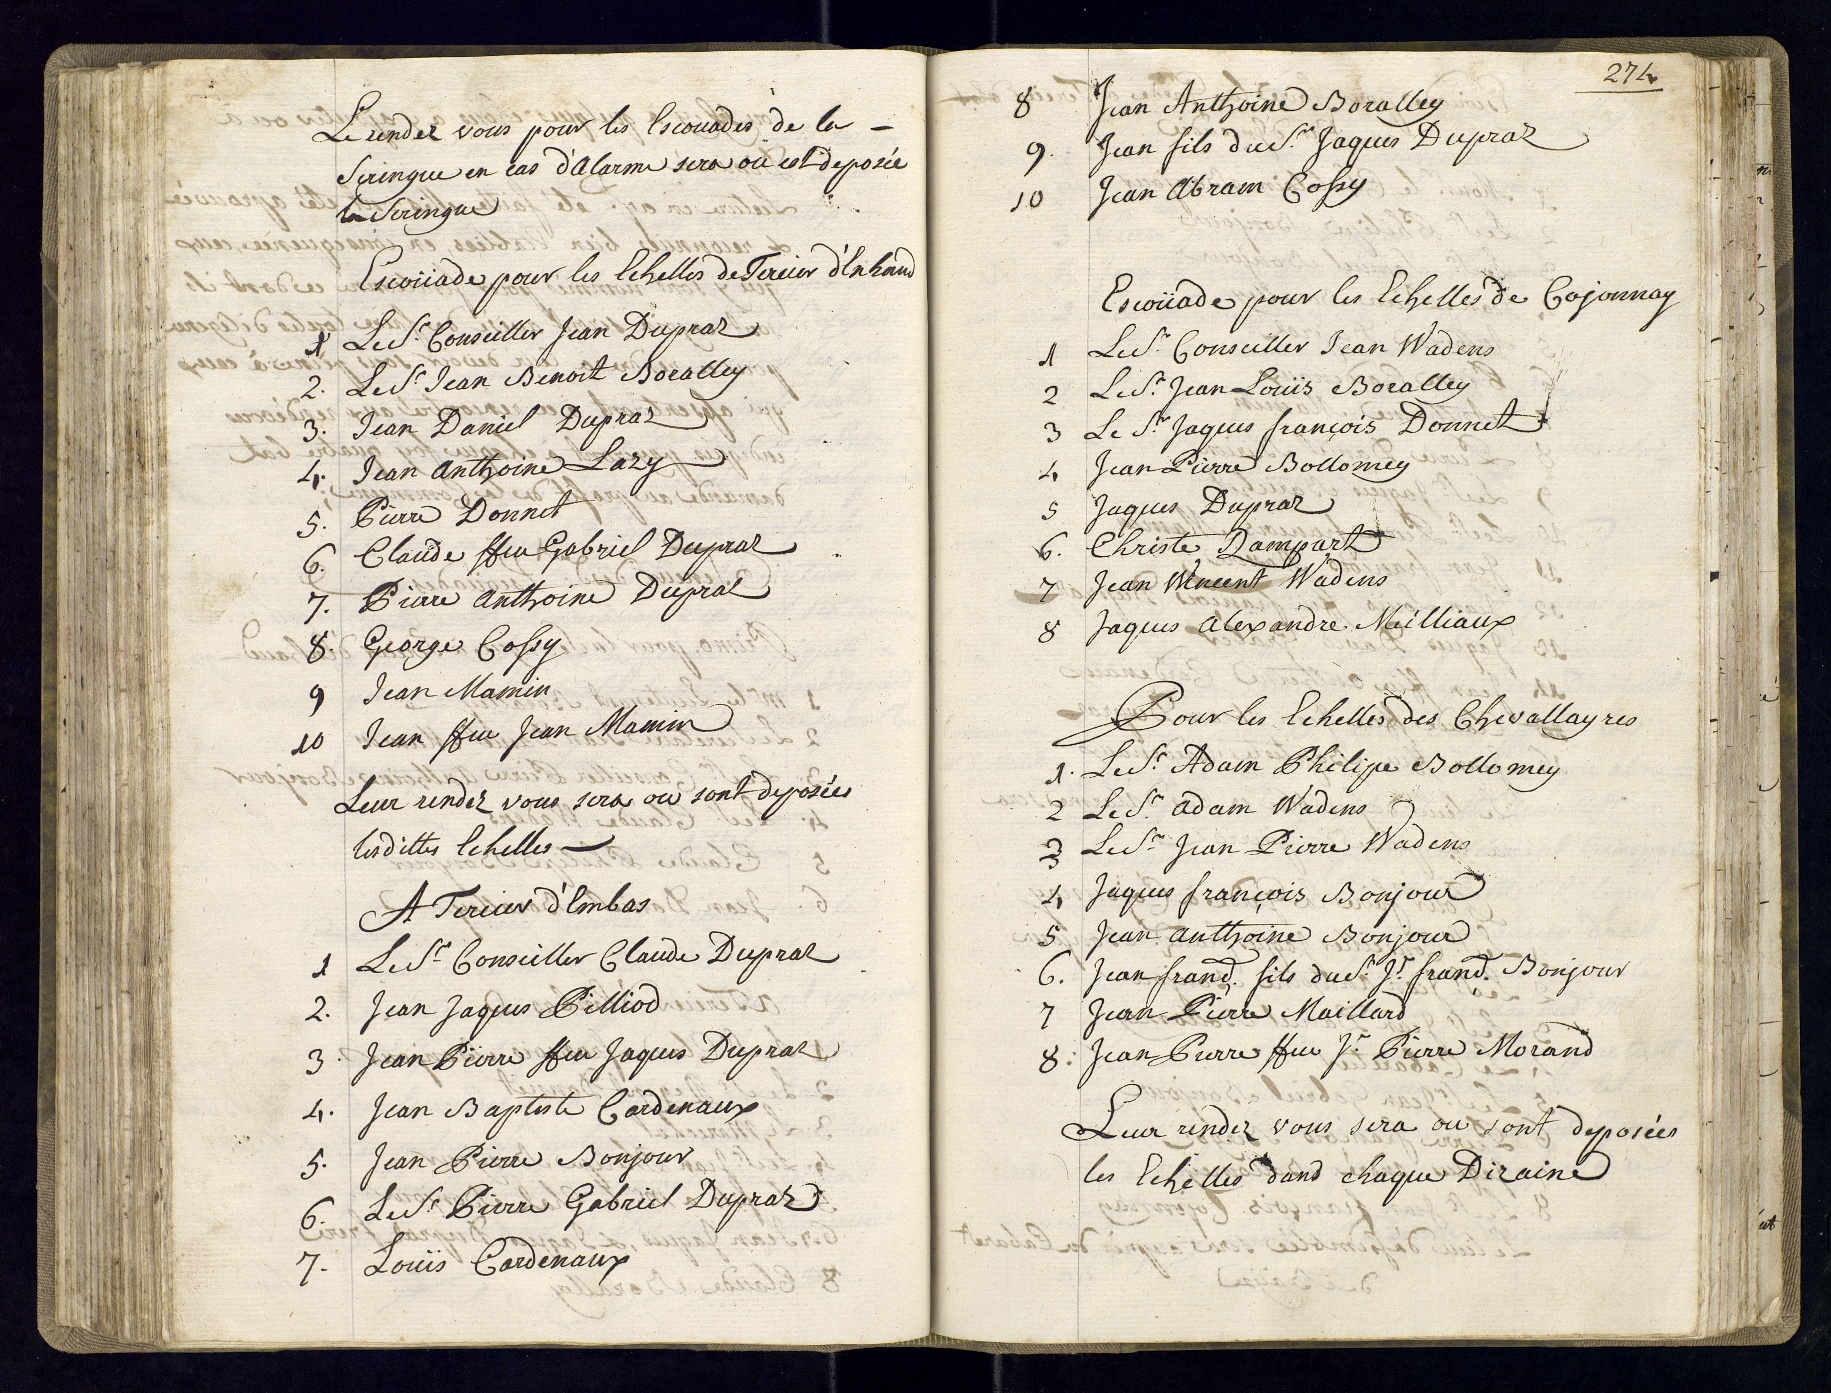 Le rendez vous pour les Escouades de la –
Seringue en cas d'Alarme sera où est deposée
la Seringue
Escoüade pour les Echelles de Tercier d'Enhaud
1 Le Sr. Conseiller Jean Dupraz
2. Le Sr. Jean Benoit Boralley
3. Jean Daniel Dupraz
4. Jean Anthoine Lazy
5. Pierre Donnet
6. Claude ffeu Gabriel Dupraz
7. Pierre Anthoine Dupraz
8. George Cossy
9 Jean Mamin
10 Jean ffeu Jean Mamin
Leur rendez vous sera où sont deposées
lesdittes Echelles –
A Tercier d'Embas
1 Le Sr. Conseiller Claude Dupraz
2. Jean Jaques Pilliod
3. Jean Pierre ffeu Jaques Dupraz
4. Jean Baptiste Cardenaux
5. Jean Pierre Bonjour
6. Le Sr. Pierre Gabriel Dupraz
7. Louïs Cardenaux
274
8 Jean Anthoine Boralley
9. Jean fils du Sr. Jaques Dupraz
10 Jean Abram Cossy
Escoüade pour les Echelles de Cojonnay
1 Le Sr. Conseiller Jean Wadens
2 Le Sr. Jean Louïs Boralley
3 Le Sr. Jaques françois Donnet
4 Jean Pierre Bollomey
5 Jaques Dupraz
6. Christe Rampart
7 Jean Vincent Wadens
8 Jaques Alexandre Milliaux
Pour les Echelles des Chevallayres
1. Le Sr. Adam Philipe Bollomey
2 Le Sr. Adam Wadens
3 Le Sr. Jean Pierre Wadens
4 Jaques françois Bonjour
5 Jean Anthoine Bonjour
6. Jean frand. fils du Sr. Jn. frand. Bonjour
7 Jean Pierre Maillard
8. Jean Pierre ffeu Jn. Pierre Morand
Leur rendez vous sera où sont deposées
les Echelles dans chaque Dizaine